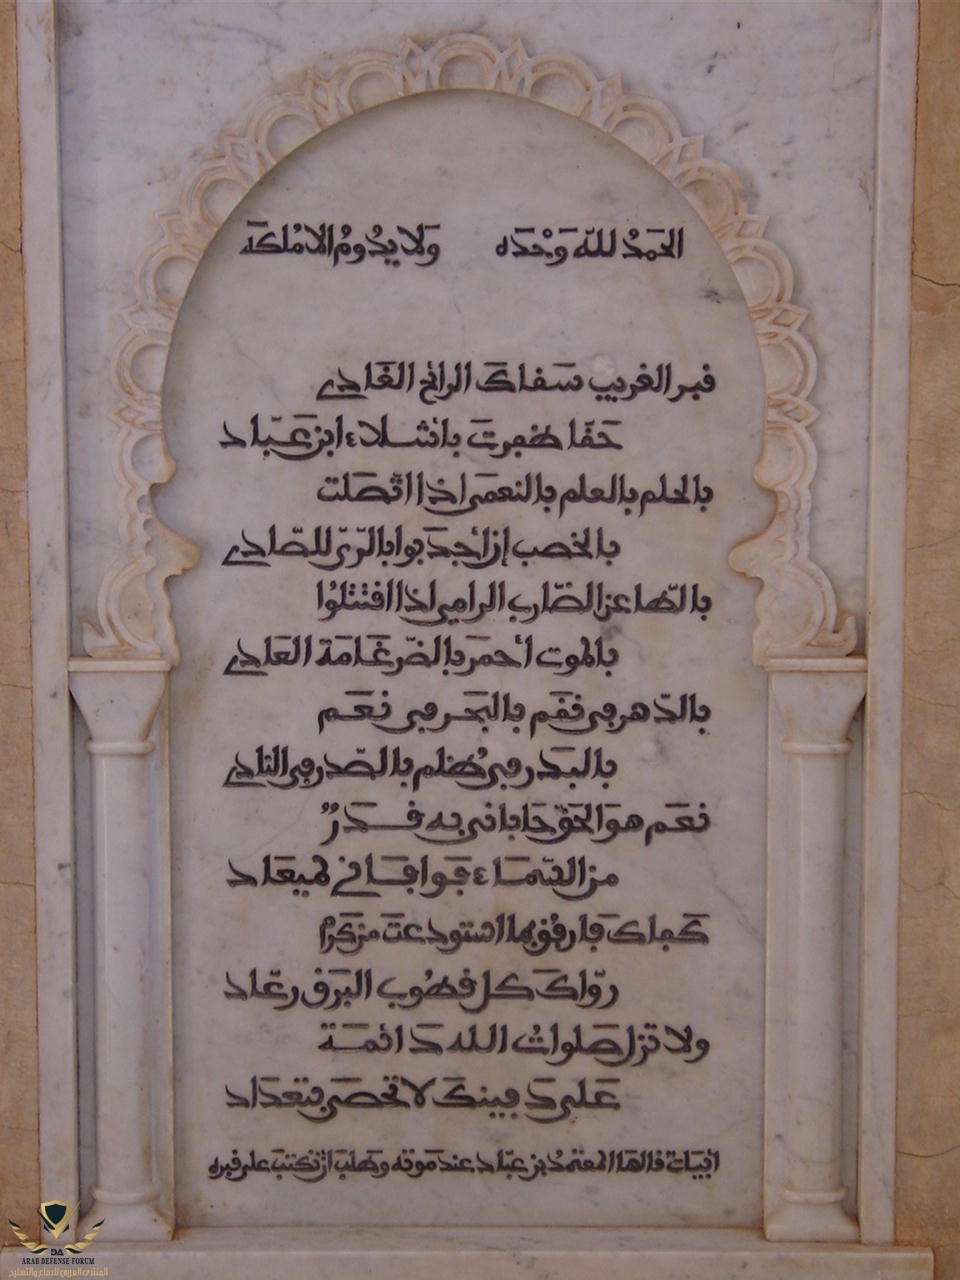 الحمدُ لله وَحْدَه وَلا يدُومُ الا مُلكه
قبر الغريب سَقاك الرائح الغَادي
حَقّا ظفرتَ بأشلاء ابن عَبّاد
بالحلم بالعلم بالنعمى اذا اتّصَلت
بالخصب إن أجدَبوا بالرّيّ للصّادي
بالطّاعن الضّارب الرامي اذا اقتتلُوا
بالموت أحمَر بالضّرغَامَة العَادي
بالدّهر في نقَم بالبَحر في نعَم
بالبَدر في ظُلم بالصّدر في النادي
نعَم هوَ الحَقّ حَاباني به قَدَرٌ
من السّمَاء فوافاني لميعَاد
كفاك فارفُق بما استودعتَ من كرَم
روّاكَ كل قطُوب البَرق رعّاد
ولا تزل صَلواتُ الله دَائمَة
عَلى دَفينكَ لا تحصَى بتعدَاد
أبيات قالها المعتمدُ بن عبّاد عند مَوته وطَلبَ أن تكتبَ على قبره
ARAB DEFENSE FORUM
المنتدى العربي للدفاع والتسليح